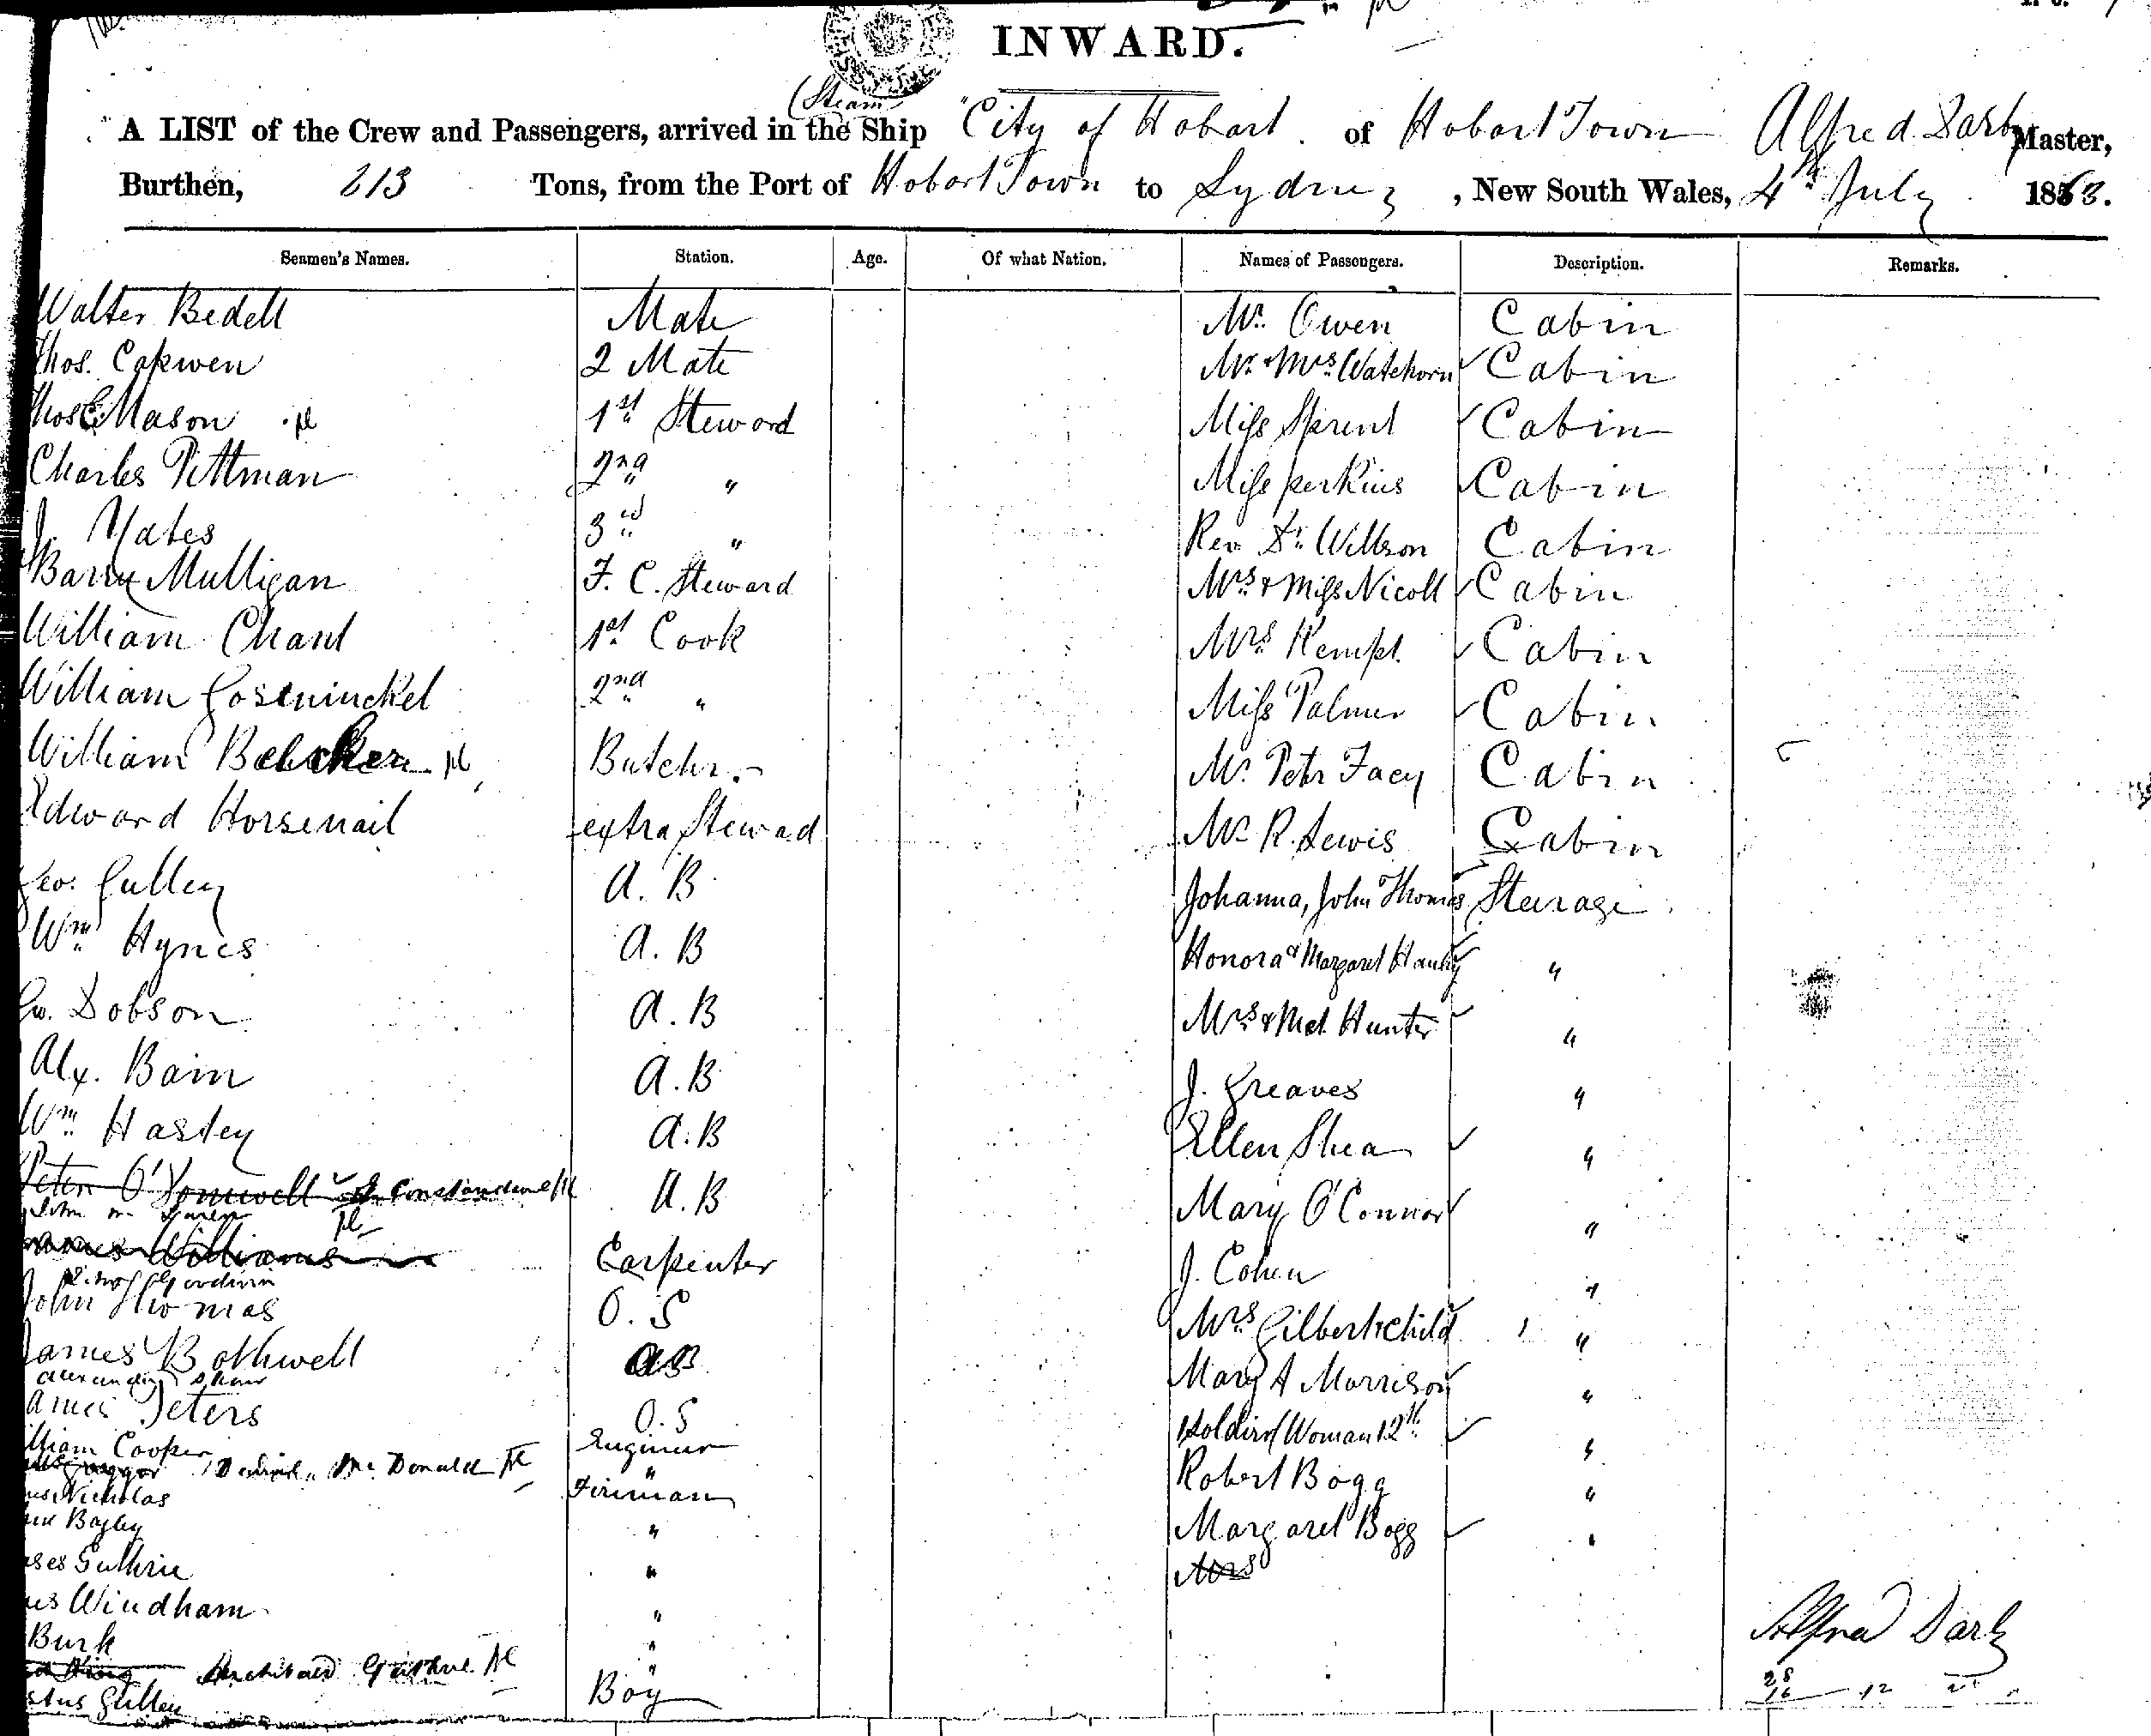 INWARD.
(Steam
A LIST of the Crew and Passengers, arrived in the Ship "City of Hobart of Hobart Town Alfred Darby Master,
Burthen, 213 Tons, from the Port of Hobart Town to Sydney, New South Wales, 4th July 1863.
Seamen's Names. Station. Age. Of what Nation. Names of Passengers. Description. Remarks.
Walter Bedell Mate Mr. Owen Cabin
Thos. Capwen 2 Mate Mr. & Mrs. Watchorn Cabin
Thos Mason 1st Steward Miss Sprent Cabin
Charles Pittman 2nd " Miss perkins Cabin
J. Yates 3rd " Rev. Dr. Willson Cabin
Barry Mulligan F. C. Steward Mrs. & Miss Nicoll Cabin
William Chant 1st Cook Mrs. Kempt. Cabin
William 2nd " Miss Palmer Cabin
William Butchr. Mr. Petr Facy Cabin
Edward Horsenail extra Steward Mr. R. Lewis Cabin
Geo. Culley A. B Johanna, John Thomas Steerage
Wm. Hynes A. B Honora & Margaret "
Geo. Dobson A. B Mrs. & Hunter "
Alx. Bain A. B J. Greaves "
Wm. Hastey A. B Ellen Shea "
Peter A. B Mary O'Connor "
Williams Carpenter J. Cohen "
John Thomas O. S Mrs. Gilbert & child "
James Bothwell AB Mary A Morrison "
James Peters O. S Woman 12th "
William Cooper Engineer
Mc Donald " Robert Bogg "
Nicholas Fireman
Bagley " Margaret Bogg "
Moses Guthrie " Mrs
Windham "
Burk "
King Archibald Guthrie "
Gullen Boy
Alfred Darby
28
16 12